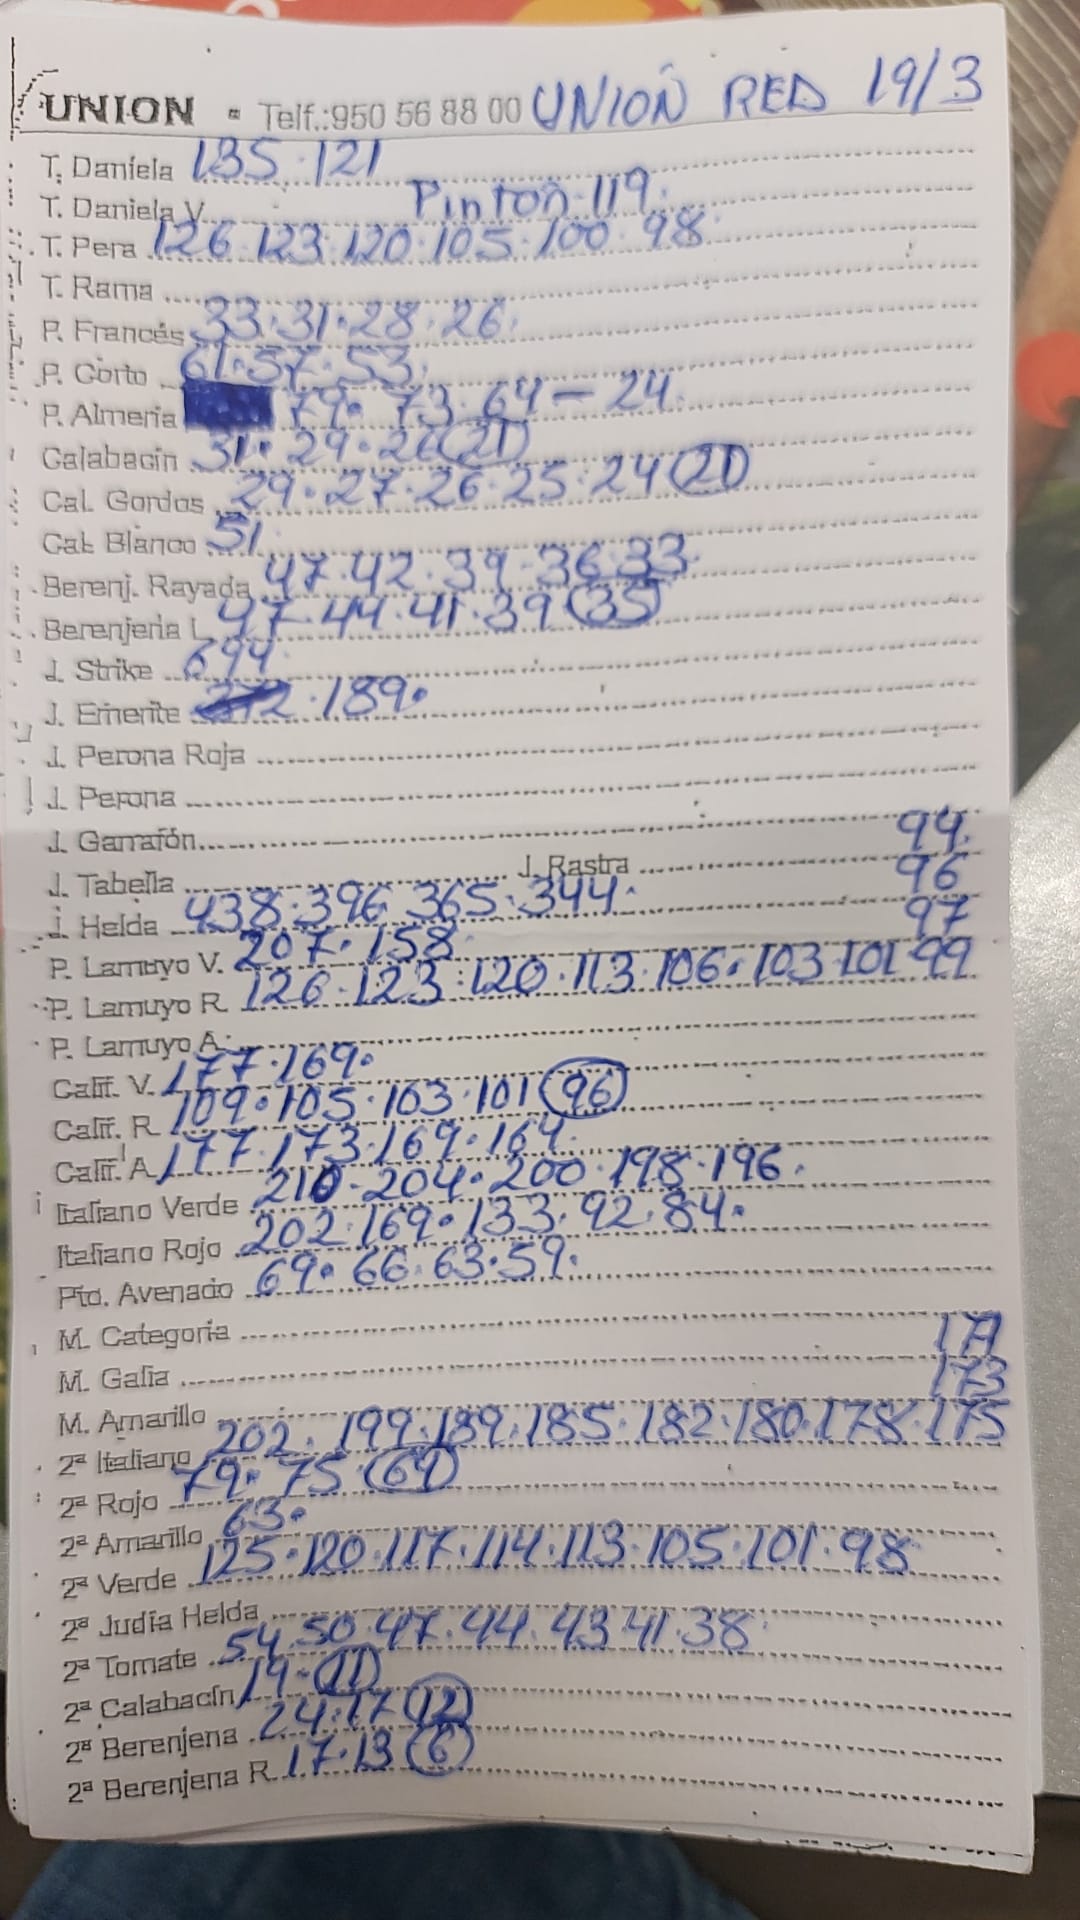 UNION - Telf.:950 56 88 00 UNION RED 19/3
T. Daniela 135·121
T. Daniela V. Pinton 119.
T. Pera 126·123·120·105·100·98
T. Rama
P. Francés 33·31·28·26.
P. Corto 61·57·53.
P. Almeria 79·73·64-24.
Calabacin 31·29·26 (21)
Cal. Gordos 29·27·26·25·24 (21)
Cal. Blanco 51
Berenj. Rayada 47·42·39·36·33.
Berenjena L 47·44·41·39 (35)
J. Strike 694
J. Emerite ·189·
J. Perona Roja
J. Perona
J. Garrafón
94.
J. Tabella J. Rastra
96
J. Helda 438·396·365·344·
97
P. Lamuyo V. 207·158.
P. Lamuyo R. 126·123·120·113·106·103·101 99
P. Lamuyo A.
Calif. V. 177·169·
Calif. R. 109·105·103·101 (96)
Calif. A. 177·173·169·164.
Italiano Verde 210-204·200·198·196.
Italiano Rojo 202·169·133·92·84.
Pto. Avenado 69·66·63·59.
M. Categoria
M. Galia
173
M. Amarillo
2ª Italiano 202·199·189·185·182·180·178·175
2ª Rojo 79·75
2ª Amarillo 63·
2ª Verde 125·120·117·114·113·105·101·98
2ª Judía Helda
2ª Tomate 54·50·47·44·43·41·38
2ª Calabacín 19·(11)
2ª Berenjena 24·17 (12)
2ª Berenjena R. 17·13 (6)